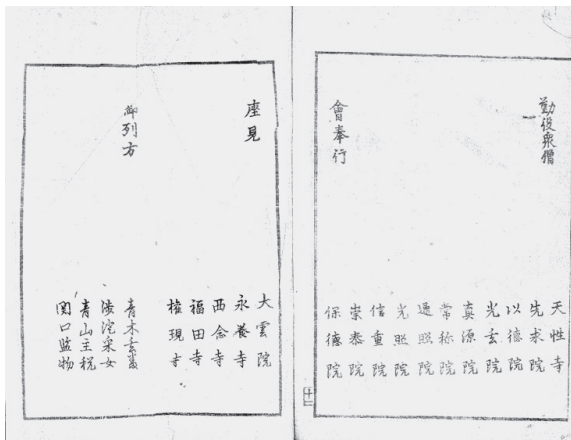 勤役衆僧
天性寺
先求院
以德院
光玄院
真源院
常称院
通照院
光照院
信重院
崇泰院
保德院
會奉行
座見
大雲院
永養寺
西念寺
福田寺
権現寺
御列方
青木玄蕃
采女
青山主税
関口監物